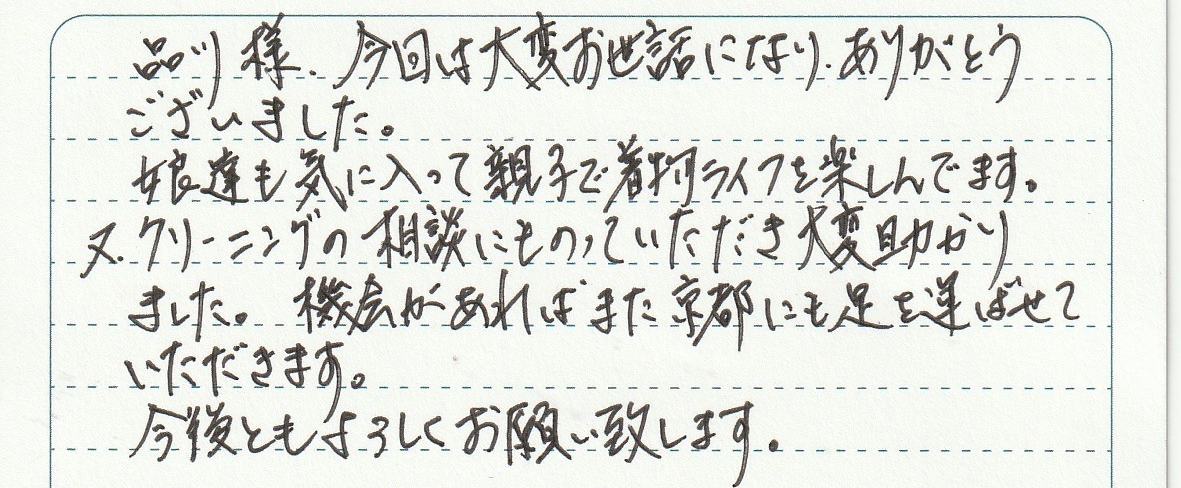 品川様、今回は大変お世話になり、ありがとう
ございました。
娘達も気に入って親子で着物ライフを楽しんでます。
又、クリーニングの相談にものっていただき大変助かり
ました。機会があればまた京都にも足を運ばせて
いただきます。
今後ともよろしくお願い致します。